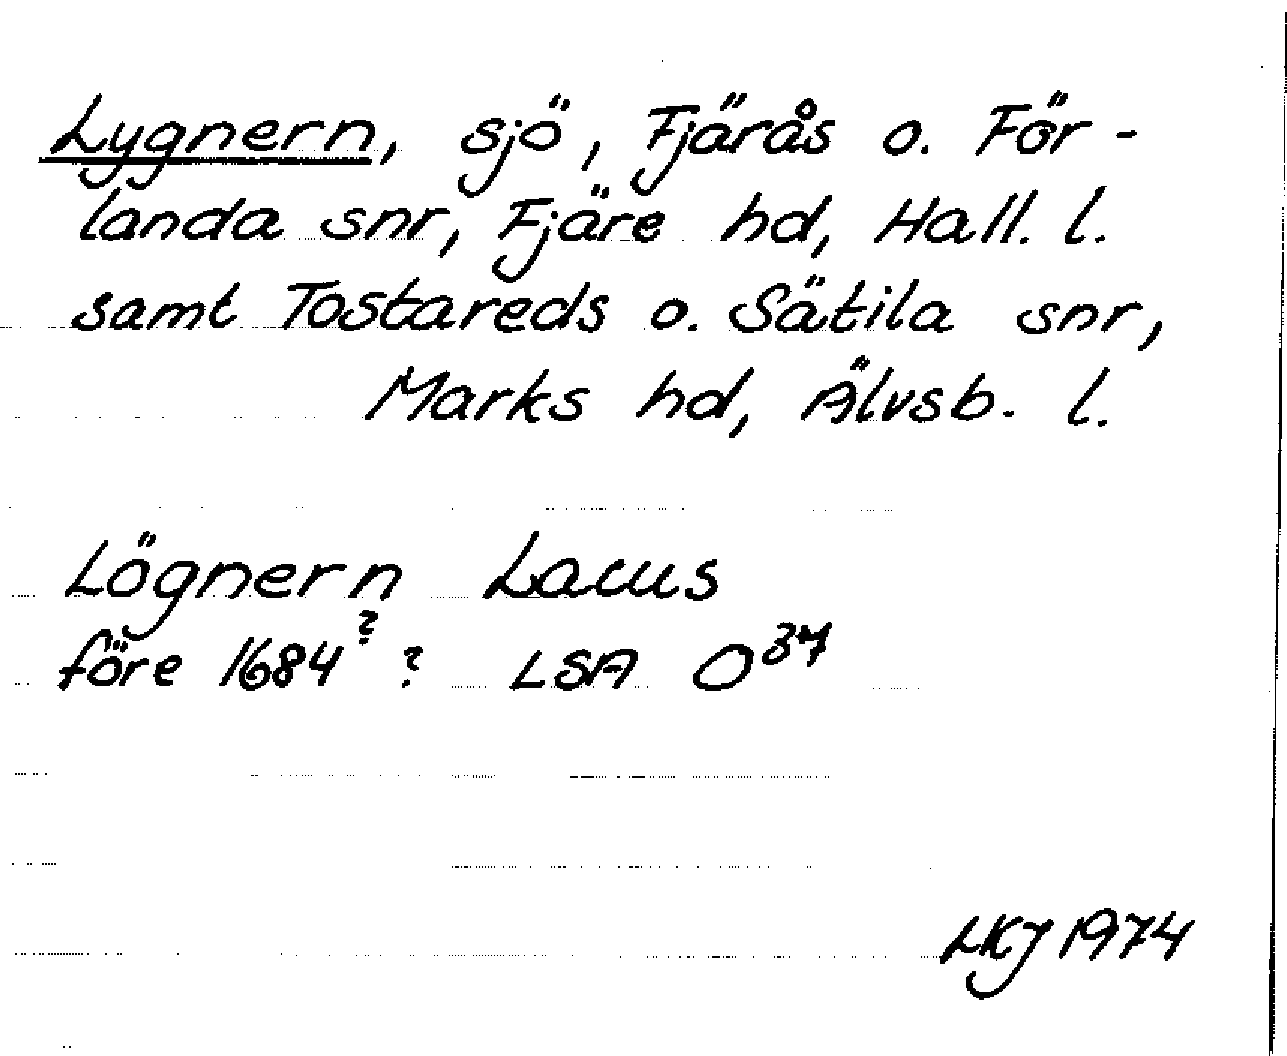 Lygnern, sjö, Fjärås o. För-
landa snr, Fjäre hd, Hall. l.
samt Tostareds o. Sätila snr,
Marks hd, Älvsb. l.
Lögnern Lacus
före 1684? ? LSA O 37
LKJ 1974